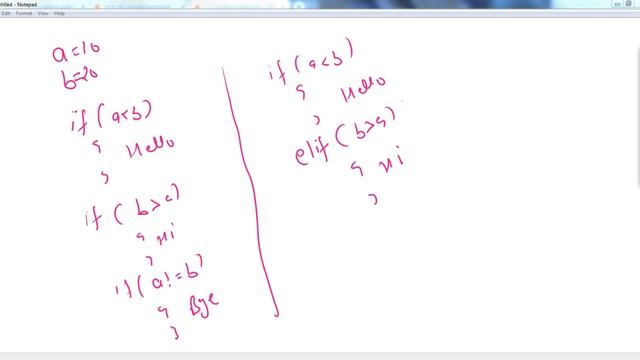 ntitled - Notepad
Edit Format View Help
a=10
b=20
if(a<b)
{ Hello
}
if(b>a)
{ Hi
}
if(a!=b)
{ Bye
}
if(a<b)
{ Hello
}
elif(b>a)
{ Hi
}